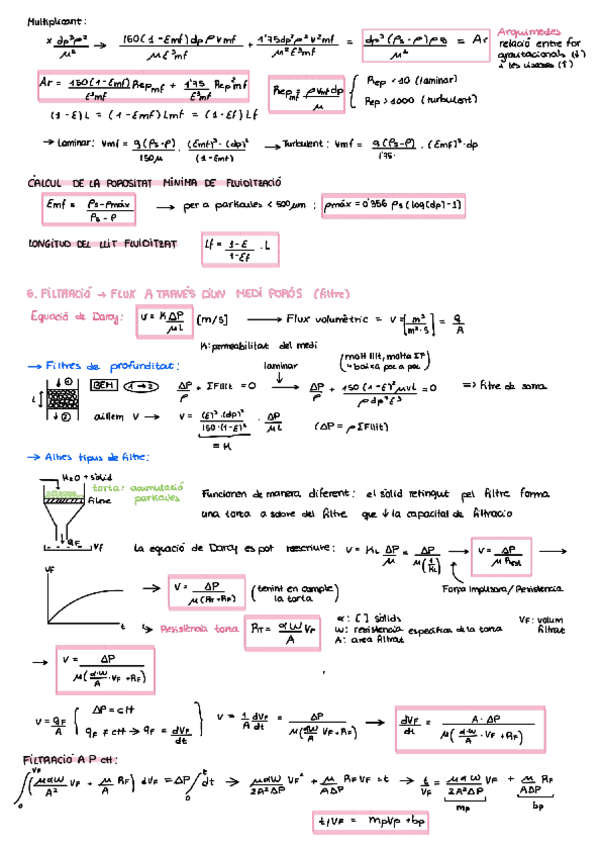 Multiplicant:
x dp³ρ²/μ² → 150(1-Emf)dp ρ vmf / μ E³mf + 1'75dp²ρ²v²mf / μ² E³mf = dp³(ρs-ρ)ρg / μ² = Ar
Arquimedes
relació entre for
gravitacionals (↓)
i les viscoses (↑)
Ar = 150(1-Emf)/E³mf Rep mf + 1'75/E³mf Rep² mf
Rep mf = ρ vmf dp / μ
Rep < 10 (laminar)
Rep > 1000 (turbulent)
(1-E)L = (1-Emf)Lmf = (1-Ef)Lf
→ Laminar: vmf = g(ρs-ρ)/150μ · (Emf)³·(dp)²/(1-Emf) → Turbulent: vmf = g(ρs-ρ)/1'75· · (Emf)³·dp
CÀLCUL DE LA POROSITAT MÍNIMA DE FLUIDITZACIÓ
Emf = ρs-ρmàx / ρs-ρ → per a partícules < 500μm : ρmàx = 0'356 ρs (log(dp)-1)
LONGITUD DEL LLIT FLUIDITZAT Lf = 1-E / 1-Ef · L
6. FILTRACIÓ → FLUX A TRAVÉS D'UN MEDI PORÓS (filtre)
Equació de Darcy: v = K ΔP / μL [m/s] → Flux volumètric = v = [m³/m²·s] = q/A
K: permeabilitat del medi
→ Filtres de profunditat: laminar (molt llit, molta ΣF
↳ baixa poc a poc)
L ① ② BEM 1→2 ΔP/ρ + ΣFllit = 0 → ΔP/ρ + 150(1-E)²μvL / ρ dp² E³ = 0 => filtre de sorra
aïllem v → v = (E)³·(dp)² / 150·(1-E)² · ΔP/μL (ΔP = ρΣFllit)
= K
→ Altres tipus de filtre:
H2O + sòlid
torta: acumulació
partícules
filtre
Funcionen de manera diferent: el sòlid retingut pel filtre forma
una torta a sobre del filtre que ↓ la capacitat de filtració
qF VF
la equació de Darcy es pot reescriure: v = K/L ΔP/μ = ΔP / μ(L/K) → v = ΔP / μ Rtot →
Força Impulsora / Resistència
VF
t
→ v = ΔP / μ(RT+RF) (tenint en compte
la torta)
↳ Resistència torta RT = αW/A VF
α: [ ] sòlids
W: resistència específica de la torta
A: àrea filtrat
VF: volum
filtrat
→ v = ΔP / μ(αW/A · VF + RF)
v = qF/A { ΔP = ctt
qF ≠ ctt → qF = dVF/dt
v = 1/A dVF/dt = ΔP / μ(αW/A VF + RF) → dVF/dt = A·ΔP / μ(αW/A · VF + RF)
FILTRACIÓ A P ctt:
∫₀^VF (μαW/A² VF + μ/A RF) dVF = ΔP ∫₀^t dt → μαW/2A²ΔP VF² + μ/AΔP RF VF = t → t/VF = μαW/2A²ΔP VF + μ RF/AΔP
mp bp
t/VF = mpVF + bp